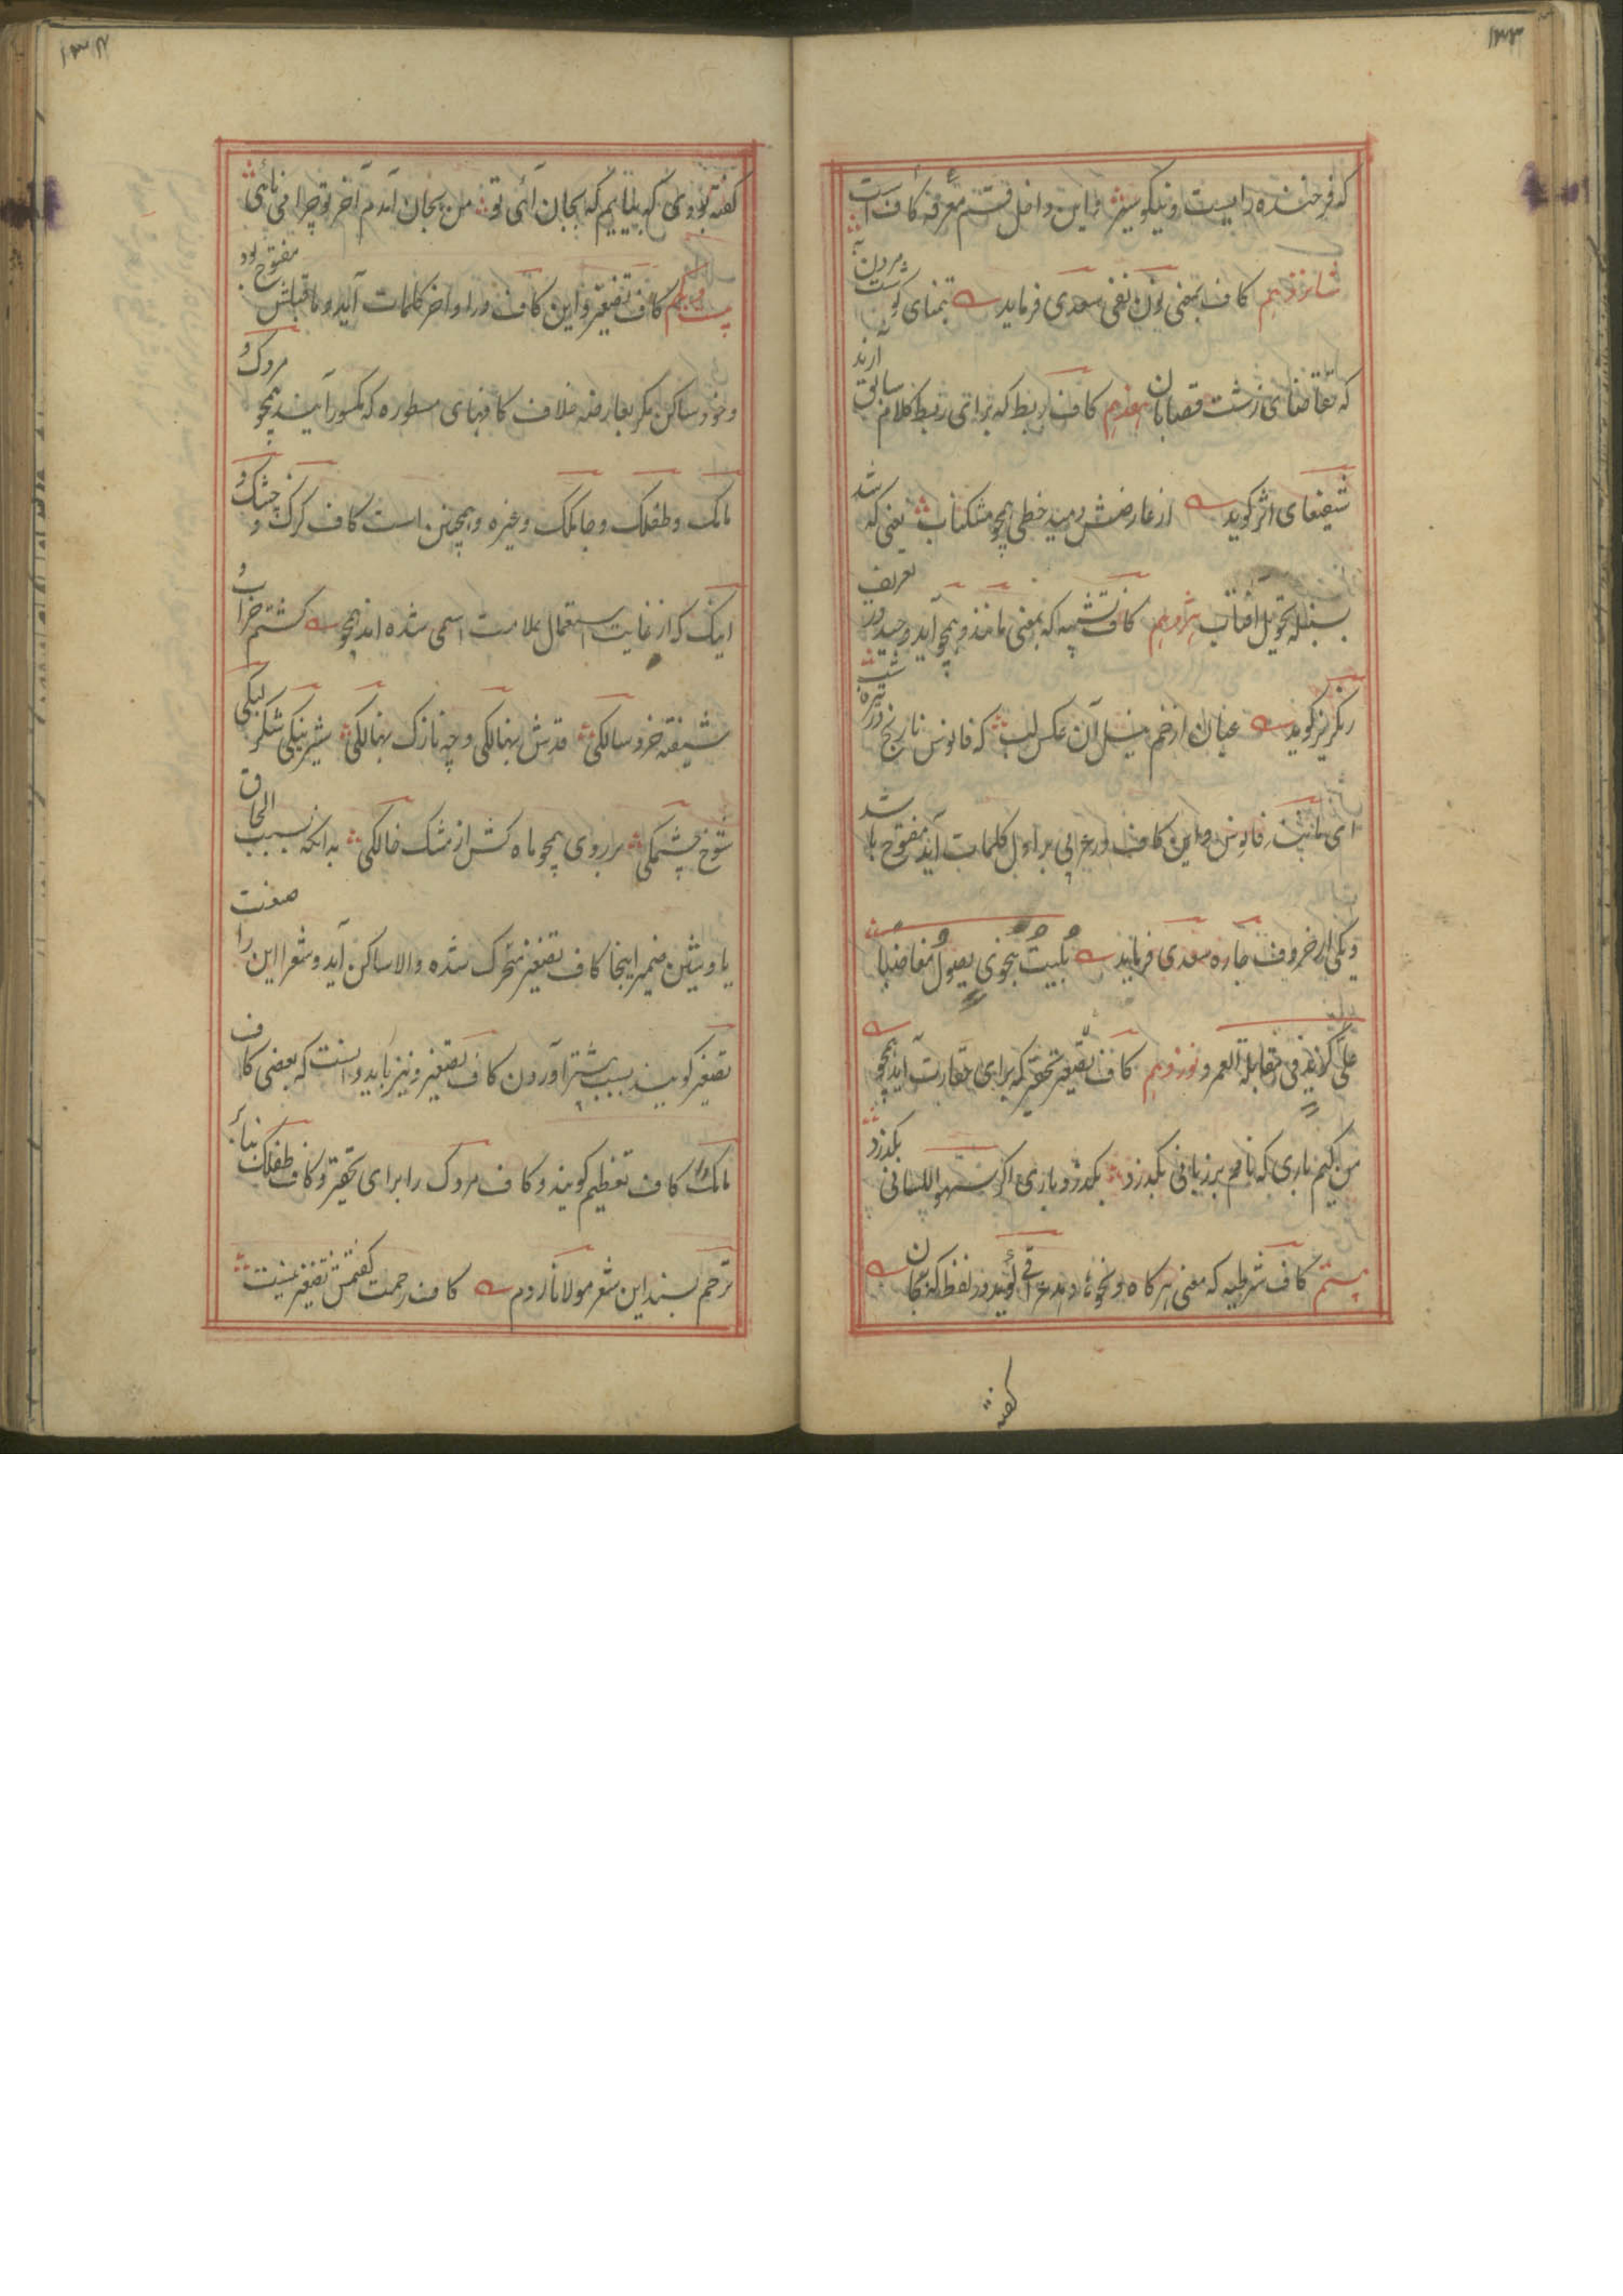 ۱۳۳
که فرخنده رایست و نیکو سیر و این داخل قسم معرفه کاف است
شانزدهم کاف بمعنی نون نفی سعدی فرماید بتمنای گوشت مردن به
که تقاضای زشت قصابان هفدهم کاف ربط که برای ربط کلام سابق آرند
شفیعای اثر گوید از عارضش دمید خطی همچو مشکناب یعنی که شد
بسنبله تحویل آفتاب هژدهم کاف تشبیه که بمعنی مانند و همچو آید وحید در تعریف
رنگریز گوید عیان از خم نیل آن عکس لب که فانوس نارنج در تیره شب
ای مانند فانوس و این کاف در عربی بر اول کلمات آید مفتوح باشد
و یکی از حروف جاره سعدی فرماید بلیت بنحوی یصول مغاضبا
علی کزید فی مقابلة العمرو نوزدهم کاف تصغیر تحقیر که برای حقارت آید همچو
من کیم باری که نامم بر زبانی بگذرد بگذرد باری اگر سهو اللسانی بگذرد
بیستم کاف شرطیه که معنی هرگاه و نحوه دهد عراقی گوید در لفظ که بجان
گفته
۱۳۴
گفته بودی که بیایم که بجان آئی تو من بجان آمدم آخر تو چرا می نائی
بیست و یکم کاف تصغیر و این کاف در اواخر کلمات آید و ماقبلش مفتوح بود
و خود ساکن مگر بعارضه خلاف کافهای مسطوره که مکسور آیند همچو مردک و
مامک و طفلک و جامک و غیره و همچنین است کاف کرک و چشک و
اینک که از غایت استعمال علامت اسمی شده اند همچو گشتم خراب و
شیفته خروسالکی قدش نهالکی و چه نازک نهالکی شیرینکی شکر لبکی
شوخ چشمکی بر روی همچو ماه کش از مشک خالکی بدانکه بسبب الحاق
یا و شین ضمیر اینجا کاف تصغیر متحرک شده والا ساکن آید و شعرا این را صفت
تصغیر گویند بسبب بیشتر آوردن کاف تصغیر و نیز باید دانست که بعضی کاف
مامک را کاف تعظیم گویند و کاف مردک را برای تحقیر و کاف طفلک بنابر
ترحم بسند این شعر مولانا روم کاف رحمت گفتمش تصغیر نیست